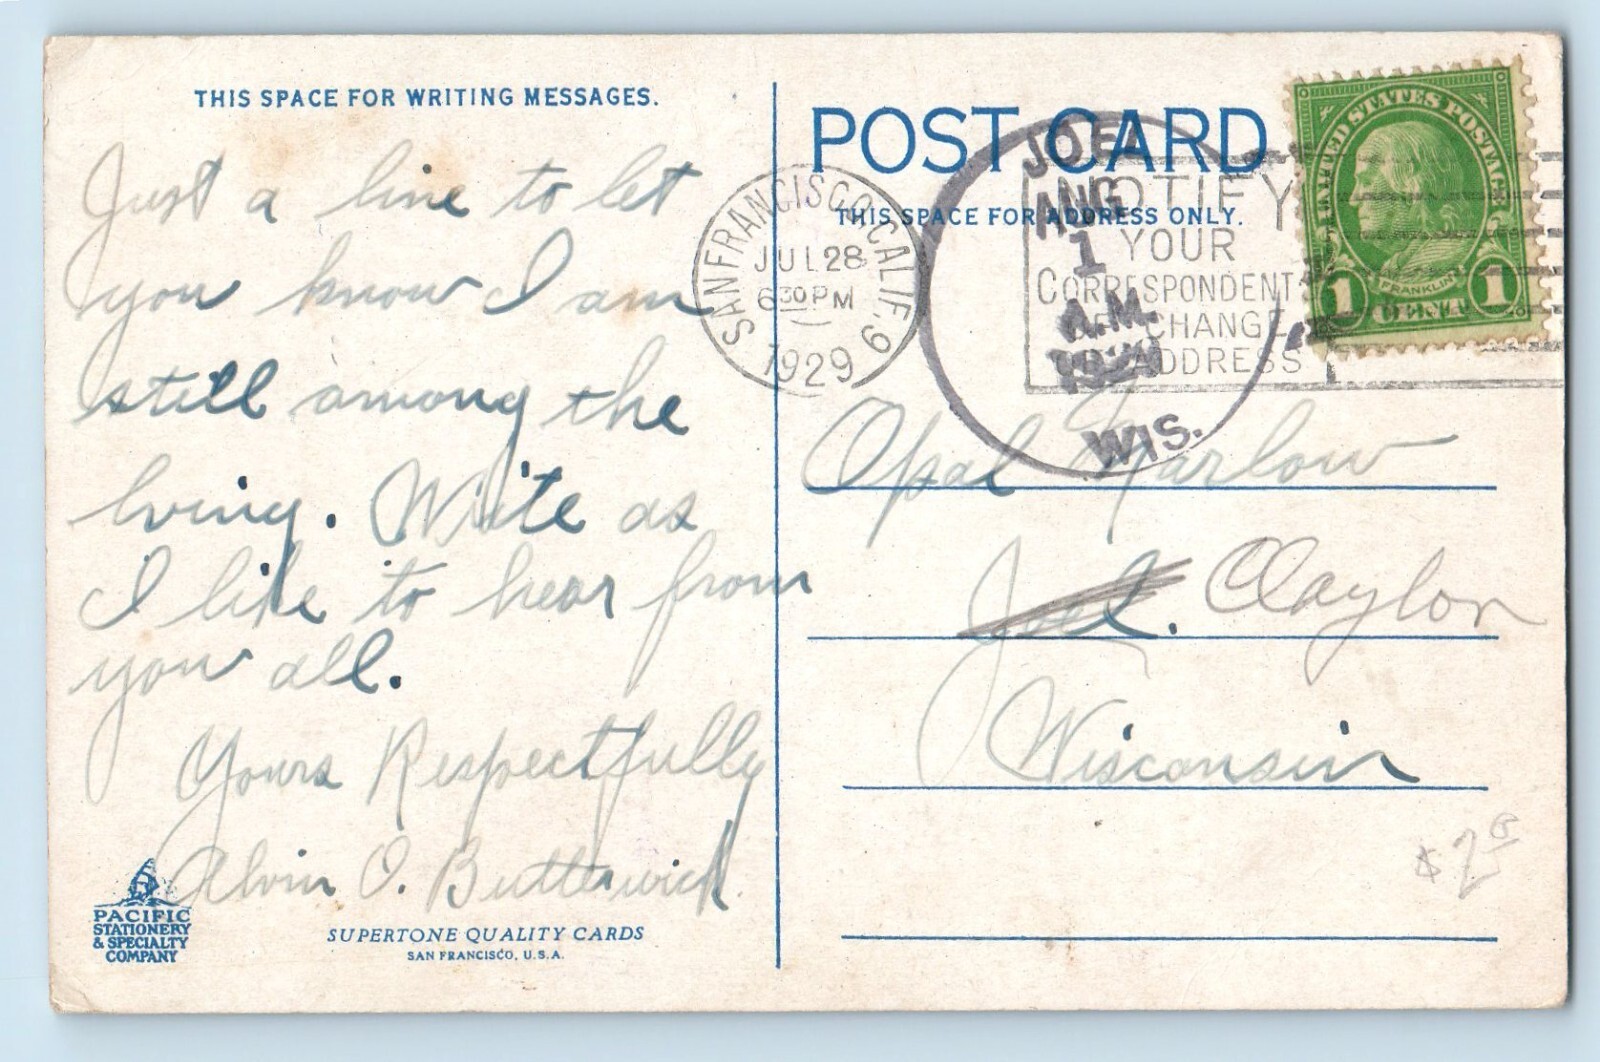 THIS SPACE FOR WRITING MESSAGES.
Just a line to let
you know I am
still among the
living. Write as
I like to hear from
you all.
Yours Respectfully
Alvin O. Butterwick
PACIFIC
STATIONERY
& SPECIALTY
COMPANY
SUPERTONE QUALITY CARDS
SAN FRANCISCO, U.S.A.
POST CARD
THIS SPACE FOR ADDRESS ONLY.
SAN FRANCISCO, CALIF. 9
JUL 28
6 30 PM
1929
NOTIFY
YOUR
CORRESPONDENTS
OF CHANGE
OF ADDRESS
JOEL
AUG
1
A.M.
1929
WIS.
UNITED STATES POSTAGE
FRANKLIN
1 CENT 1
Opal Marlow
Joel. Claylon
Wisconsin